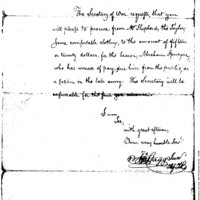 The Secretary of War requests, that you
will please to procure from Mr Shepherd, the Taylor,
some comfortable clothing, to the amount of fifteen
or twenty dollars, for the bearer, Abraham
who has arrears of pay due him from the public, as
a soldier in the late army. The Secretary will be
answerable for the
I am
Sir,
with great esteem
Your very humble Serv